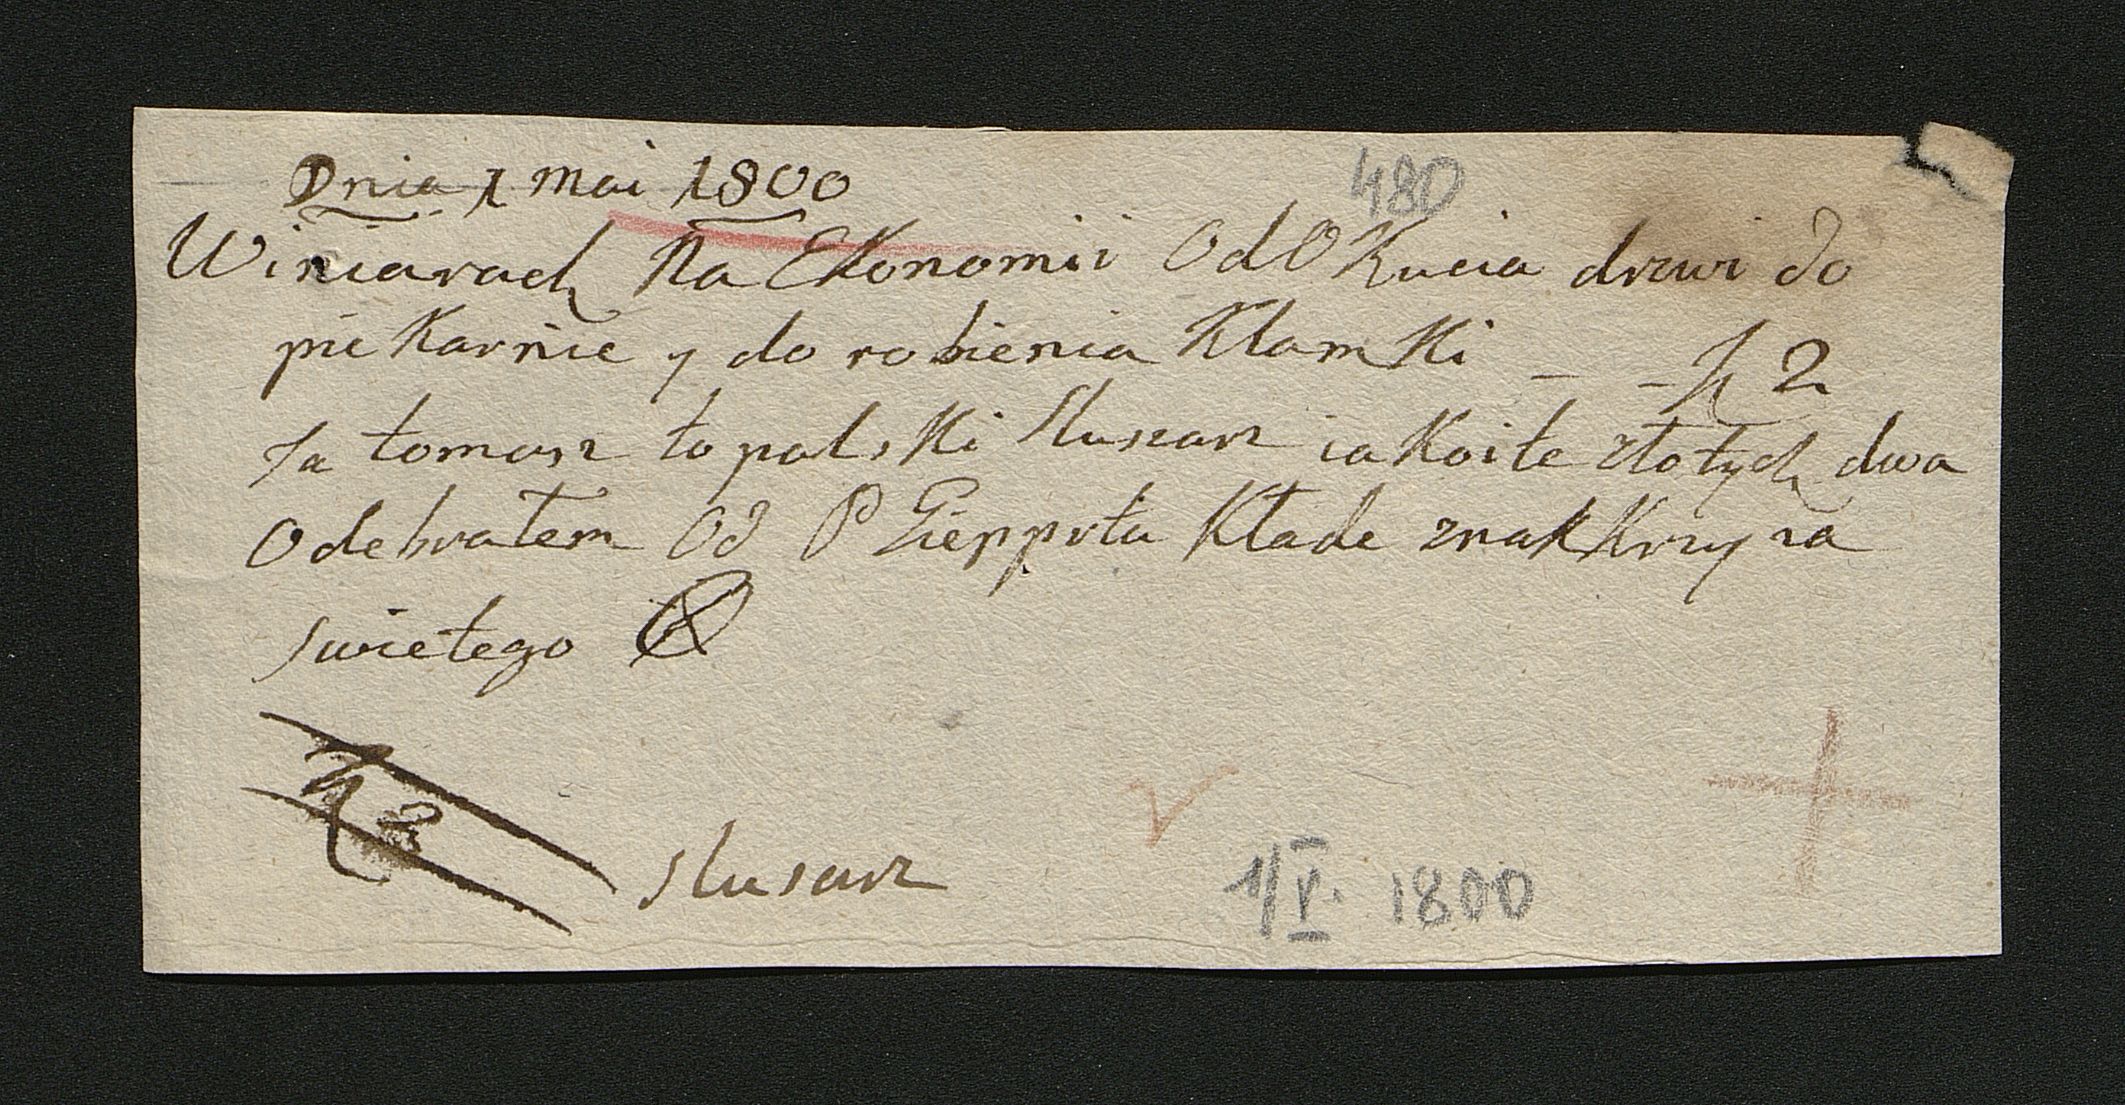 Dnia 1 mai 1800
480
Winiarach Na Ekonomii Od Okucia drzwi do
piekarnie y do robienia Klamki - - zł 2
Ja tomasz topolski slusarz iakoite złotych dwa
Odebrałem Od P Klade znak Krzyza
swietego
zł 2
slusarz
1/V. 1800